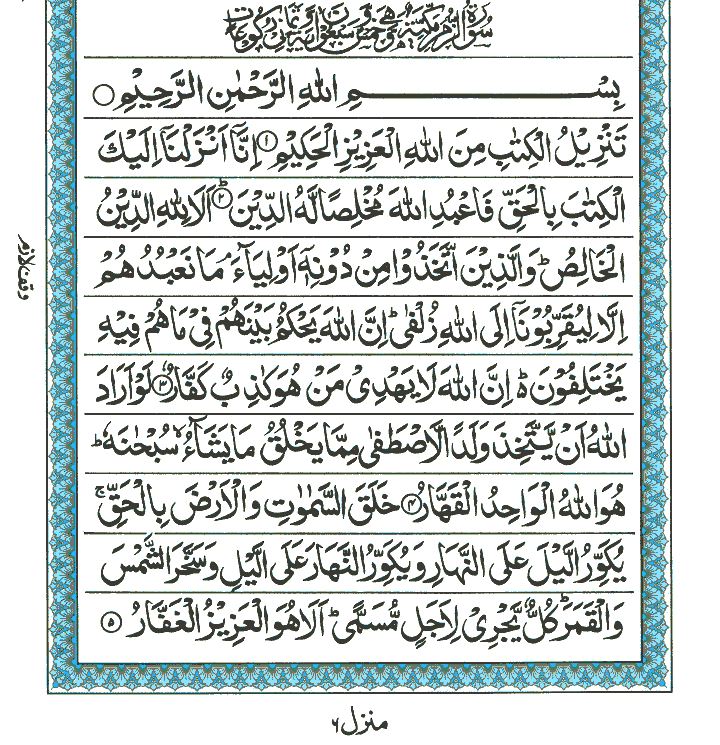 سُوْرَةُ الزُّمَرِ مَكِّيَّةٌ وَّهِيَ خَمْسٌ وَّسَبْعُوْنَ اٰيَةً وَّثَمَانِيْ رُكُوْعَاتٍ
بِسْمِ اللهِ الرَّحْمٰنِ الرَّحِيْمِ ○
تَنْزِيْلُ الْكِتٰبِ مِنَ اللهِ الْعَزِيْزِ الْحَكِيْمِ ۝۱ اِنَّاۤ اَنْزَلْنَاۤ اِلَيْكَ
الْكِتٰبَ بِالْحَقِّ فَاعْبُدِ اللهَ مُخْلِصًا لَّهُ الدِّيْنَ ۝۲ؕ اَلَا لِلّٰهِ الدِّيْنُ
الْخَالِصُ ؕ وَالَّذِيْنَ اتَّخَذُوْا مِنْ دُوْنِهٖۤ اَوْلِيَآءَ ۘ مَا نَعْبُدُهُمْ
اِلَّا لِيُقَرِّبُوْنَاۤ اِلَى اللهِ زُلْفٰى ؕ اِنَّ اللهَ يَحْكُمُ بَيْنَهُمْ فِيْ مَا هُمْ فِيْهِ
يَخْتَلِفُوْنَ ؕ۬ اِنَّ اللهَ لَا يَهْدِيْ مَنْ هُوَ كٰذِبٌ كَفَّارٌ ۝۳ لَوْ اَرَادَ
اللهُ اَنْ يَّتَّخِذَ وَلَدًا لَّاصْطَفٰى مِمَّا يَخْلُقُ مَا يَشَآءُ ۙ سُبْحٰنَهٗ ؕ
هُوَ اللهُ الْوَاحِدُ الْقَهَّارُ ۝۴ خَلَقَ السَّمٰوٰتِ وَالْاَرْضَ بِالْحَقِّ ۚ
يُكَوِّرُ الَّيْلَ عَلَى النَّهَارِ وَيُكَوِّرُ النَّهَارَ عَلَى الَّيْلِ وَسَخَّرَ الشَّمْسَ
وَالْقَمَرَ ؕ كُلٌّ يَّجْرِيْ لِاَجَلٍ مُّسَمًّى ؕ اَلَا هُوَ الْعَزِيْزُ الْغَفَّارُ ۝۵
وقف لازم
منزل ۶